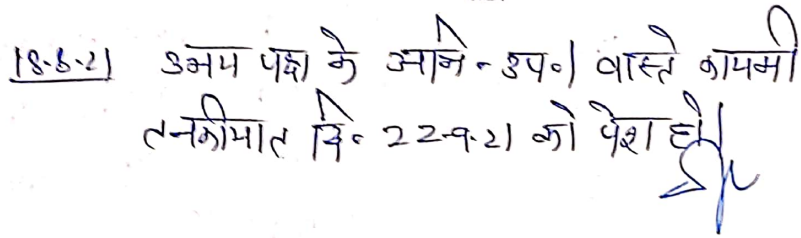 18-6-21 उभय पक्ष के अभि॰ उप॰। वास्ते कायमी
तनकीयात दि॰ 22-9-21 को पेश हो।